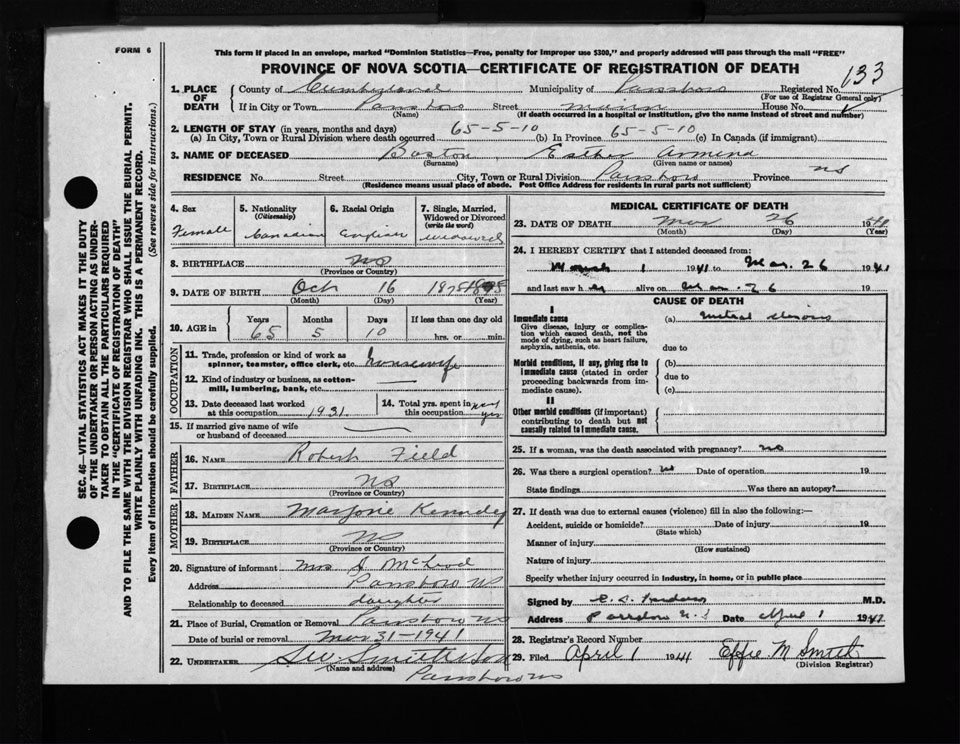 FORM 6
This form if placed in an envelope, marked "Dominion Statistics—Free, penalty for improper use $300," and properly addressed will pass through the mail "FREE"
PROVINCE OF NOVA SCOTIA—CERTIFICATE OF REGISTRATION OF DEATH
133
1. PLACE OF DEATH County of Cumberland Municipality of Parrsboro Registered No.
(For use of Registrar General only)
If in City or Town Parrsboro Street Main House No.
(Name) (If death occurred in a hospital or institution, give the name instead of street and number)
2. LENGTH OF STAY (in years, months and days)
(a) In City, Town or Rural Division where death occurred 65-5-10 (b) In Province 65-5-10 (c) In Canada (if immigrant)
3. NAME OF DECEASED Esther
(Surname) (Given name or names)
RESIDENCE No. Street City, Town or Rural Division Parrsboro Province NS
(Residence means usual place of abode. Post Office Address for residents in rural parts not sufficient)
4. Sex Female
5. Nationality (Citizenship) Canadian
6. Racial Origin English
7. Single, Married, Widowed or Divorced (write the word) widowed
8. BIRTHPLACE NS
(Province or Country)
9. DATE OF BIRTH Oct 16 1875
(Month) (Day) (Year)
10. AGE in Years 65 Months 5 Days 10 If less than one day old hrs. or min.
OCCUPATION
11. Trade, profession or kind of work as spinner, teamster, office clerk, etc. Housewife
12. Kind of industry or business, as cotton-mill, lumbering, bank, etc. —
13. Date deceased last worked at this occupation 1931
14. Total yrs. spent in this occupation
15. If married give name of wife or husband of deceased —
FATHER
16. NAME Robert Field
17. BIRTHPLACE NS
(Province or Country)
MOTHER
18. MAIDEN NAME Marjorie Kennedy
19. BIRTHPLACE NS
(Province or Country)
20. Signature of informant Mrs J McLeod
Address Parrsboro NS
Relationship to deceased daughter
21. Place of Burial, Cremation or Removal Parrsboro NS
Date of burial or removal Mar 31-1941
22. UNDERTAKER Smith
(Name and address)
Parrsboro NS
MEDICAL CERTIFICATE OF DEATH
23. DATE OF DEATH Mar 26 19
(Month) (Day) (Year)
24. I HEREBY CERTIFY that I attended deceased from:
March 1 1941 to Mar. 26 1941
and last saw h alive on Mar. 26 19
CAUSE OF DEATH
I
Immediate cause
Give disease, injury or complication which caused death, not the mode of dying, such as heart failure, asphyxia, asthenia, etc.
(a) mitral
due to
Morbid conditions, if any, giving rise to immediate cause (stated in order proceeding backwards from immediate cause).
(b)
due to
(c)
II
Other morbid conditions (if important) contributing to death but not causally related to immediate cause.
25. If a woman, was the death associated with pregnancy? no
26. Was there a surgical operation? Date of operation 19
State findings Was there an autopsy?
27. If death was due to external causes (violence) fill in also the following:—
Accident, suicide or homicide? Date of injury 19
(State which)
Manner of injury
(How sustained)
Nature of injury
Specify whether injury occurred in industry, in home, or in public place
Signed by M.D.
Address Date April 1 1941
28. Registrar's Record Number
29. Filed April 1 1941 Effie M Smith
(Division Registrar)
SEC. 46—VITAL STATISTICS ACT MAKES IT THE DUTY
OF THE UNDERTAKER OR PERSON ACTING AS UNDER-
TAKER TO OBTAIN ALL THE PARTICULARS REQUIRED
IN THE "CERTIFICATE OF REGISTRATION OF DEATH"
AND TO FILE THE SAME WITH THE DIVISION REGISTRAR WHO SHALL ISSUE THE BURIAL PERMIT.
WRITE PLAINLY WITH UNFADING INK. THIS IS A PERMANENT RECORD.
Every item of information should be carefully supplied. (See reverse side for instructions.)